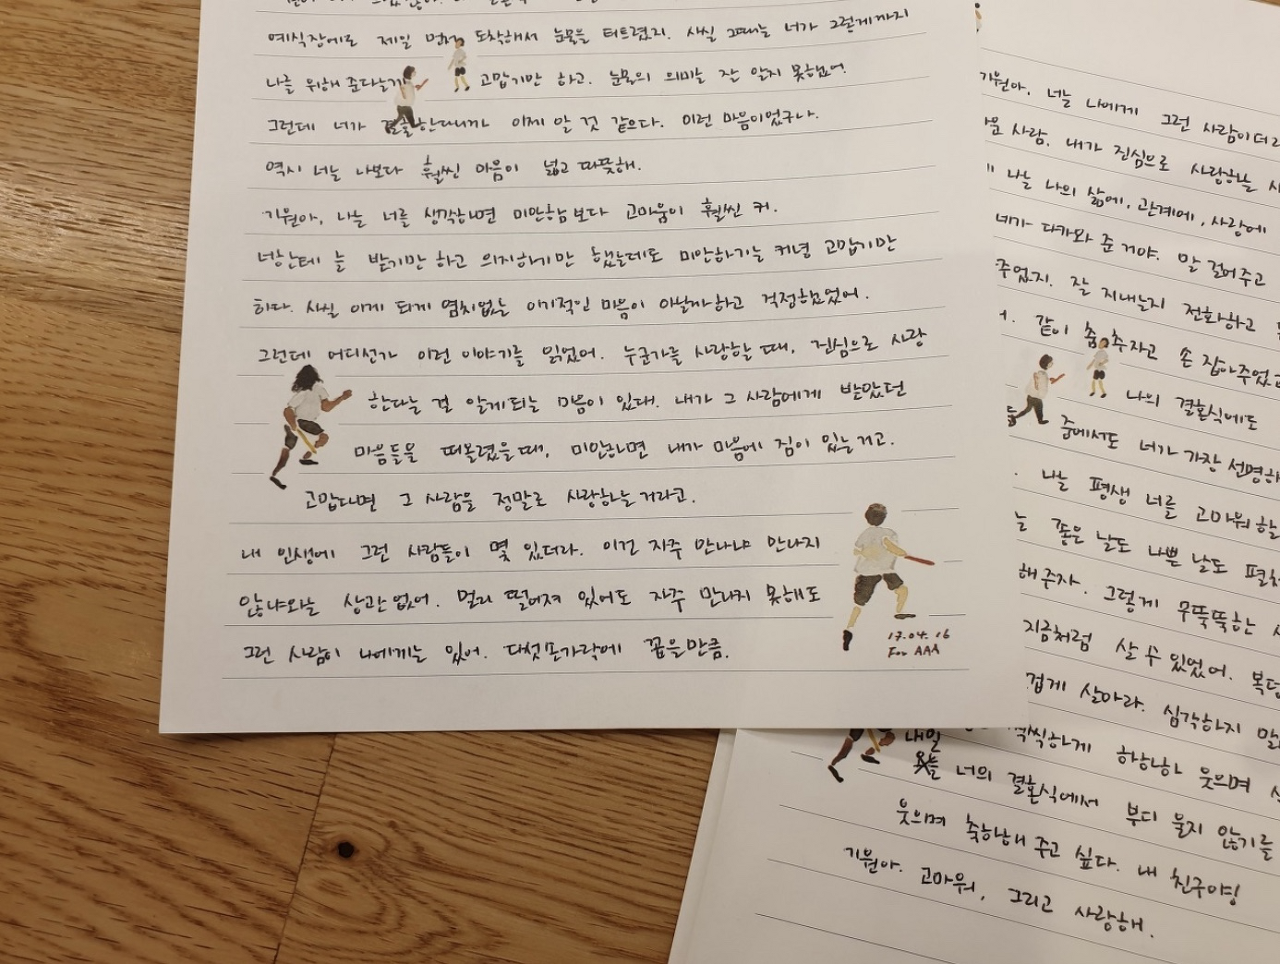 예식장에로 제일 먼저 도착해서 눈물을 터트렸지. 사실 그때는 너가 그렇게까지
나를 위해 준다는게 고맙기만 하고. 눈물의 의미는 잘 알지 못했어.
그런데 너가 결혼한다니까 이제 알 것 같은다. 이런 마음이었구나.
역시 너는 나보다 훨씬 마음이 넓고 따뜻해.
기원아, 나는 너를 생각하면 미안함보다 고마움이 훨씬 커.
너한테 늘 받기만 하고 의지하기만 했는데도 미안하기는 커녕 고맙기만
하다. 사실 이게 되게 염치없는 이기적인 마음이 아닐까하고 걱정했었어.
그런데 어디선가 이런 이야기를 읽었어. 누군가를 사랑할 때, 진심으로 사랑
한다는 걸 알게되는 마음이 있대. 내가 그 사람에게 받았던
마음들을 떠올렸을때, 미안하면 내가 마음에 짐이 있는거고.
고맙다면 그 사람을 정말로 사랑하는거라고.
내 인생에 그런 사람들이 몇 있더라. 이건 자주 만나냐 만나지
않냐와는 상관없어. 멀리 떨어져 있어도 자주 만나지 못해도
그런 사람이 나에게는 있어. 다섯손가락에 꼽을만큼.
17.04.16
For AAA
기원아. 너는 나에게 그런 사람이더라
사람. 내가 진심으로 사랑하는
나는 나의 삶에, 관계에, 사랑에
네가 다가와 준거야. 말 걸어주고
주었지. 잘 지내는지 전화하고
같이 춤추자고 손 잡아주었
나의 결혼식에도
중에서도 너가 가장 선명하
나는 평생 너를 고마워할
좋은 날도 나쁜 날도 펼쳐
해주자. 그렇게 우뚝뚝하는
지금처럼 살 수 있었어.
겁게 살아라. 심각하지 말
씩씩하게 하하하하 웃으며
내일 너의 결혼식에서 부디 울지 않기를
웃으며 축하해 주고 싶다. 내 친구야!
기원아. 고마워, 그리고 사랑해.